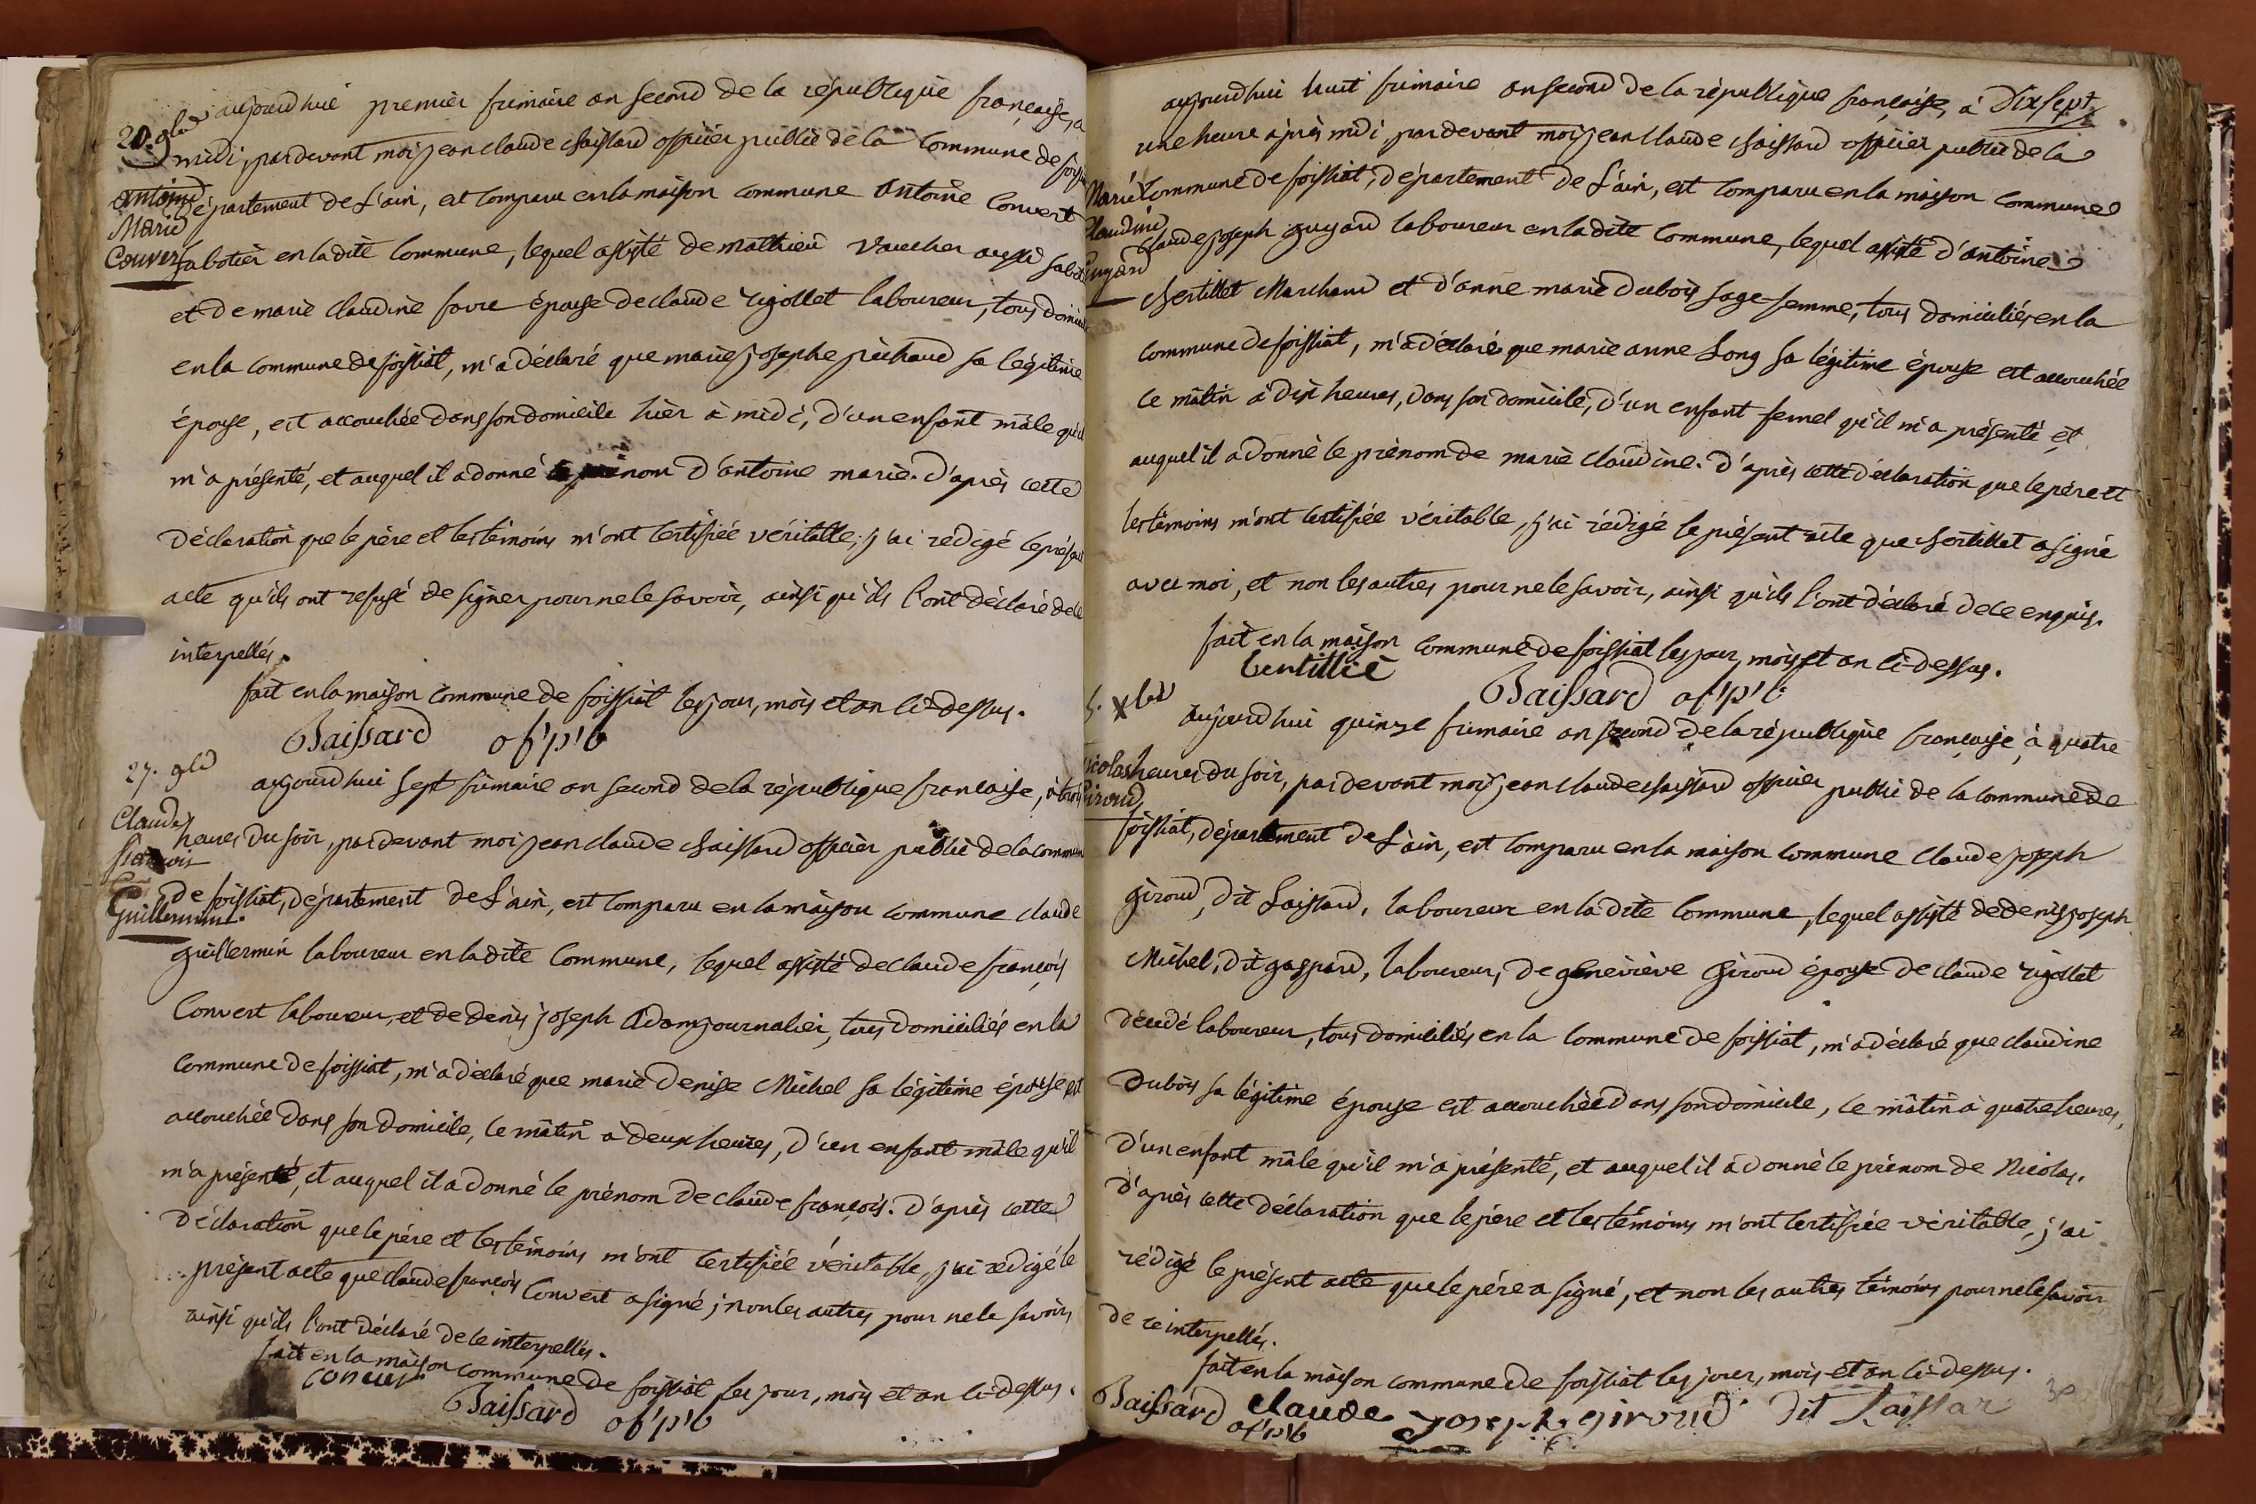 20. 9bre
antoine
Marie
Convert
aujourd'hui premier frimaire an second de la république française, a
midi, pardevant moi jean claude chaissard officier public de la Commune de foissiat
département de L'ain, est comparu en la maison commune Antoine Convert
sabotier en la dite Commune, lequel assisté de mathieu Vaucher aussi sabotier
et de marie claudine favre épouse de claude rigollet laboureur, tous domiciliés
en la commune de foissiat, m'a déclaré que marie josephe pichaud sa légitime
épouse, est accouchée dans son domicile hier à midi, d'un enfant mâle qu'il
m'a présenté, et auquel il a donné le prénom d'antoine marie. d'après cette
déclaration que le père et les témoins m'ont certifiée véritable, j'ai rédigé le présent
acte qu'ils ont refusé de signer pour ne le savoir, ainsi qu'ils l'ont déclaré de ce
interpellés.
fait en la maison commune de foissiat les jour, mois et an ci-dessus.
Baissard of'p'b
27. 9bre
Claude
françois
Guillermin.
aujourd'hui sept frimaire an second de la république française, à trois
heures du soir, pardevant moi jean claude chaissard officier public de la commune
de foissiat, département de L'ain, est comparu en la maison commune claude
guillermin laboureur en la dite Commune, lequel assisté de claude françois
Convert laboureur, et de denis joseph Adam journalier, tous domiciliés en la
commune de foissiat, m'a déclaré que marie denise Michel sa légitime épouse est
accouchée dans son domicile, ce mâtin à deux heures, d'un enfant mâle qu'il
m'a présenté, et auquel il a donné le prénom de claude françois. d'après cette
déclaration que le père et les témoins m'ont certifiée véritable, j'ai rédigé le
présent acte que claude françois Convert a signé, non les autres pour ne le savoir,
ainsi qu'ils l'ont déclaré de ce interpellés.
fait en la maison commune de foissiat les jour, mois et an ci-dessus.
Baissard of'p'b
Dixsept
Marie
Claudine
guyard
aujourd'hui huit frimaire an second de la république française, à
une heure après midi, pardevant moi jean claude chaissard officier public de la
Commune de foissiat, département de L'ain, est comparu en la maison commune
claude joseph guyard laboureur en la dite Commune, lequel assisté d'antoine
Chertillet Marchand et d'anne marie dubois sage-femme, tous domiciliés en la
commune de foissiat, m'a déclaré que marie anne Long sa légitime épouse est accouchée
ce mâtin à dix heures, dans son domicile, d'un enfant femel qu'il m'a présenté, et
auquel il a donné le prénom de marie claudine. d'après cette déclaration que le père et
les témoins m'ont certifiée véritable, j'ai rédigé le présent acte que chertillet a signé
avec moi, et non les autres pour ne le savoir, ainsi qu'ils l'ont déclaré de ce enquis.
fait en la maison commune de foissiat les jour, mois et an ci-dessus.
Baissard of'p'b
5. xbre
nicolas
Giroud
aujourd'hui quinze frimaire an second de la république française, à quatre
heures du soir, pardevant moi jean claude chaissard officier public de la commune de
foissiat, département de L'ain, est comparu en la maison commune claude joseph
giroud, dit Laissard, laboureur en la dite Commune, lequel assisté de denis joseph
Michel, dit gaspard, laboureur, de geneviève Giroud épouse de claude rigollet
décédé laboureur, tous domiciliés en la commune de foissiat, m'a déclaré que claudine
Dubois sa légitime épouse est accouchée dans son domicile, ce mâtin à quatre heures,
d'un enfant mâle qu'il m'a présenté, et auquel il a donné le prénom de Nicolas.
d'après cette déclaration que le père et les témoins m'ont certifiée véritable, j'ai
rédigé le présent acte que le père a signé, et non les autres témoins pour ne le savoir
de ce interpellés.
fait en la maison commune de foissiat les jour, mois et an ci-dessus.
Baissard of'p'b claude Joseph giroud dit Laissar